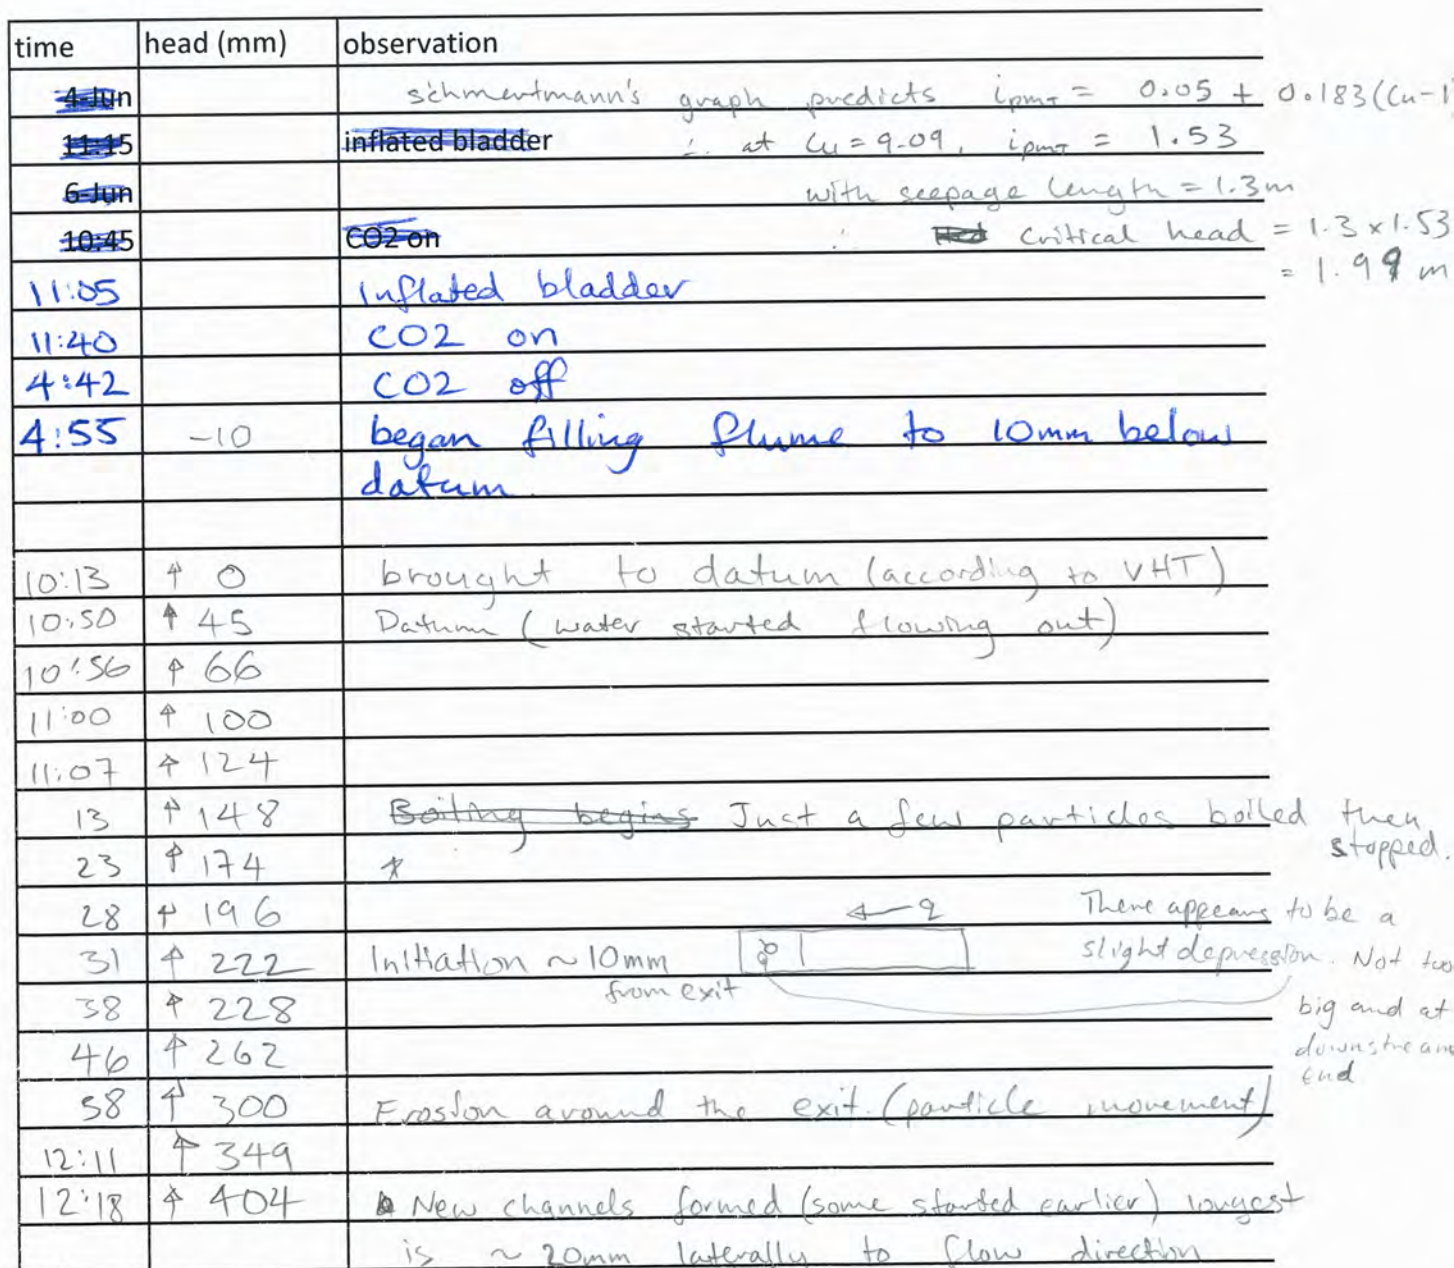 time head (mm) observation
4-Jun schmertmann's graph predicts ipmt = 0.05 + 0.183(Cu-1)
11:15 inflated bladder ∴ at Cu = 9.09, ipmt = 1.53
6-Jun with seepage length = 1.3m
10:45 CO2 on ∴ Critical head = 1.3 x 1.53
= 1.99 m
11:05 Inflated bladder
11:40 CO2 on
4:42 CO2 off
4:55 -10 began filling flume to 10mm below
datum.
10:13 ↑ 0 brought to datum (according to VHT)
10:50 ↑ 45 Datum (water started flowing out)
10:56 ↑ 66
11:00 ↑ 100
11:07 ↑ 124
13 ↑ 148 Boiling begins Just a few particles boiled then
stopped.
23 ↑ 174 *
28 ↑ 196 ← q There appears to be a
31 ↑ 222 Initiation ~10mm slight depression. Not too
from exit
38 ↑ 228 big and at
46 ↑ 262 downstream
end
58 ↑ 300 Erosion around the exit. (particle movement)
12:11 ↑ 349
12:18 ↑ 404 New channels formed (some started earlier) longest
is ~ 20mm laterally to flow direction